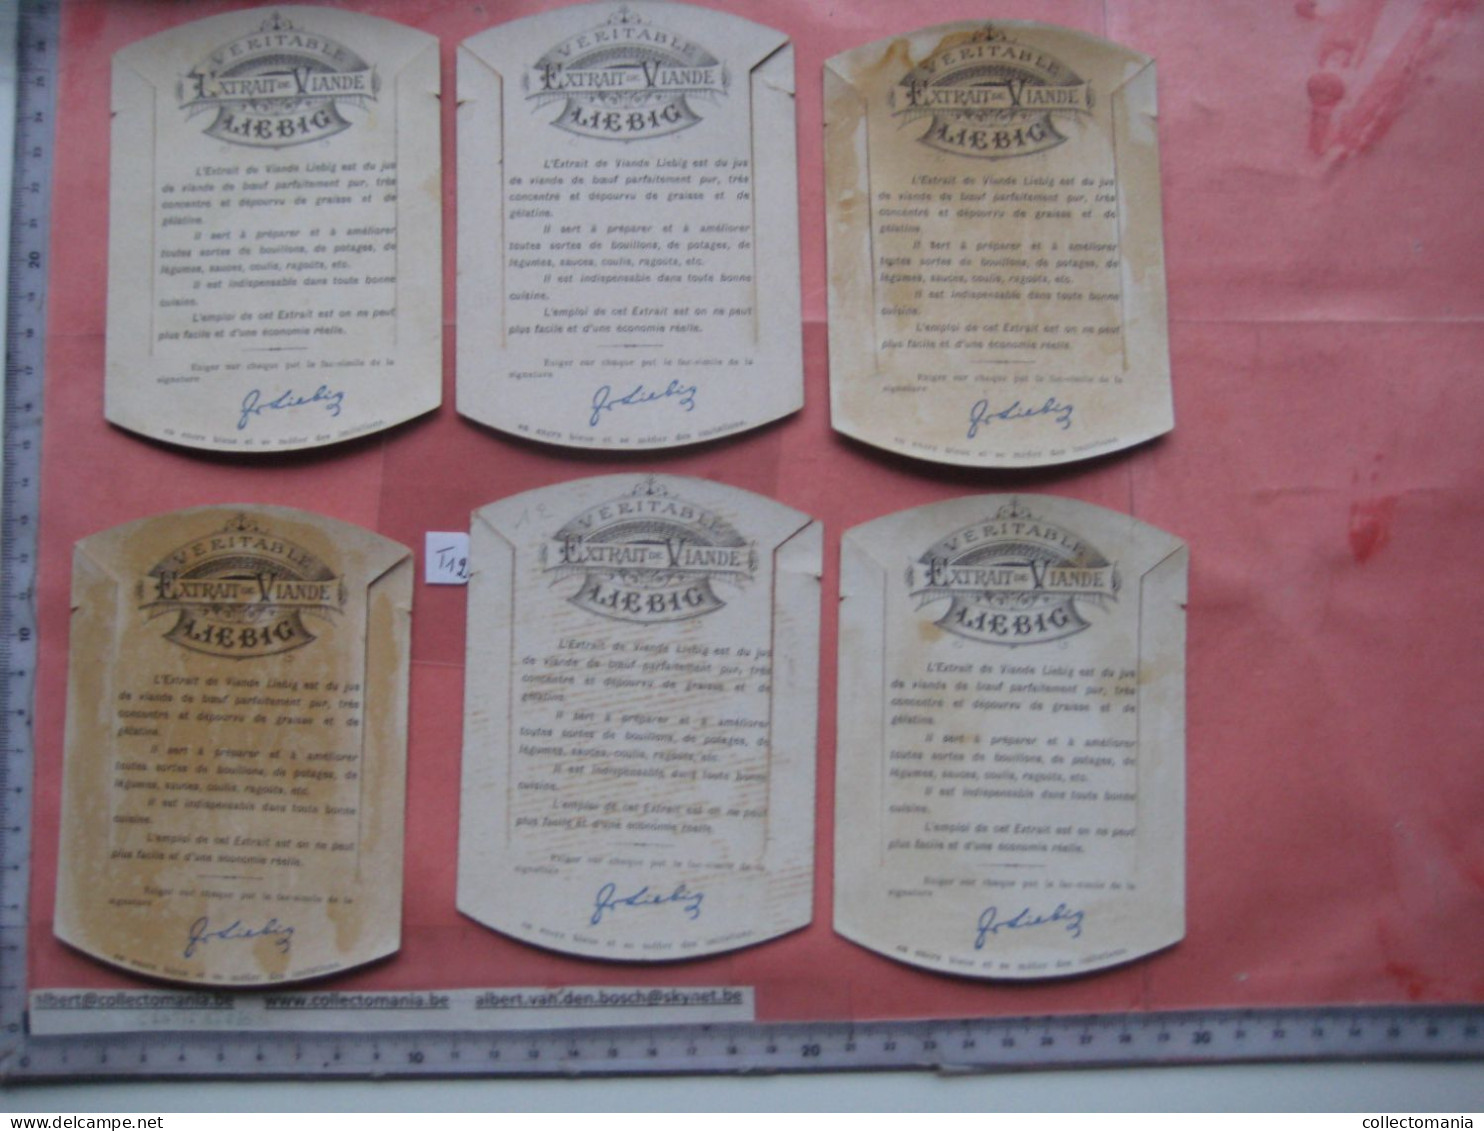 VERITABLE
EXTRAIT DE VIANDE
LIEBIG
L'Extrait de Viande Liebig est du jus
de viande de bœuf parfaitement pur, très
concentré et dépourvu de graisse et de
gélatine.
Il sert à préparer et à améliorer
toutes sortes de bouillons, de potages, de
légumes, sauces, coulis, ragoûts, etc.
Il est indispensable dans toute bonne
cuisine.
L'emploi de cet Extrait est on ne peut
plus facile et d'une économie réelle.
Exiger sur chaque pot le fac-simile de la
signature
J v Liebig
en encre bleue et se méfier des imitations.
VERITABLE
EXTRAIT DE VIANDE
LIEBIG
L'Extrait de Viande Liebig est du jus
de viande de bœuf parfaitement pur, très
concentré et dépourvu de graisse et de
gélatine.
Il sert à préparer et à améliorer
toutes sortes de bouillons, de potages, de
légumes, sauces, coulis, ragoûts, etc.
Il est indispensable dans toute bonne
cuisine.
L'emploi de cet Extrait est on ne peut
plus facile et d'une économie réelle.
Exiger sur chaque pot le fac-simile de la
signature
J v Liebig
en encre bleue et se méfier des imitations.
VERITABLE
EXTRAIT DE VIANDE
LIEBIG
L'Extrait de Viande Liebig est du jus
de viande de bœuf parfaitement pur, très
concentré et dépourvu de graisse et de
gélatine.
Il sert à préparer et à améliorer
toutes sortes de bouillons, de potages, de
légumes, sauces, coulis, ragoûts, etc.
Il est indispensable dans toute bonne
cuisine.
L'emploi de cet Extrait est on ne peut
plus facile et d'une économie réelle.
Exiger sur chaque pot le fac-simile de la
signature
J v Liebig
en encre bleue et se méfier des imitations.
VERITABLE
EXTRAIT DE VIANDE
LIEBIG
L'Extrait de Viande Liebig est du jus
de viande de bœuf parfaitement pur, très
concentré et dépourvu de graisse et de
gélatine.
Il sert à préparer et à améliorer
toutes sortes de bouillons, de potages, de
légumes, sauces, coulis, ragoûts, etc.
Il est indispensable dans toute bonne
cuisine.
L'emploi de cet Extrait est on ne peut
plus facile et d'une économie réelle.
Exiger sur chaque pot le fac-simile de la
signature
J v Liebig
en encre bleue et se méfier des imitations.
T12
VERITABLE
EXTRAIT DE VIANDE
LIEBIG
L'Extrait de Viande Liebig est du jus
de viande de bœuf parfaitement pur, très
concentré et dépourvu de graisse et de
gélatine.
Il sert à préparer et à améliorer
toutes sortes de bouillons, de potages, de
légumes, sauces, coulis, ragoûts, etc.
Il est indispensable dans toute bonne
cuisine.
L'emploi de cet Extrait est on ne peut
plus facile et d'une économie réelle.
Exiger sur chaque pot le fac-simile de la
signature
J v Liebig
en encre bleue et se méfier des imitations.
VERITABLE
EXTRAIT DE VIANDE
LIEBIG
L'Extrait de Viande Liebig est du jus
de viande de bœuf parfaitement pur, très
concentré et dépourvu de graisse et de
gélatine.
Il sert à préparer et à améliorer
toutes sortes de bouillons, de potages, de
légumes, sauces, coulis, ragoûts, etc.
Il est indispensable dans toute bonne
cuisine.
L'emploi de cet Extrait est on ne peut
plus facile et d'une économie réelle.
Exiger sur chaque pot le fac-simile de la
signature
J v Liebig
en encre bleue et se méfier des imitations.
albert@collectomania.be www.collectomania.be albert.van.den.bosch@skynet.be
10 20 30
collectomania